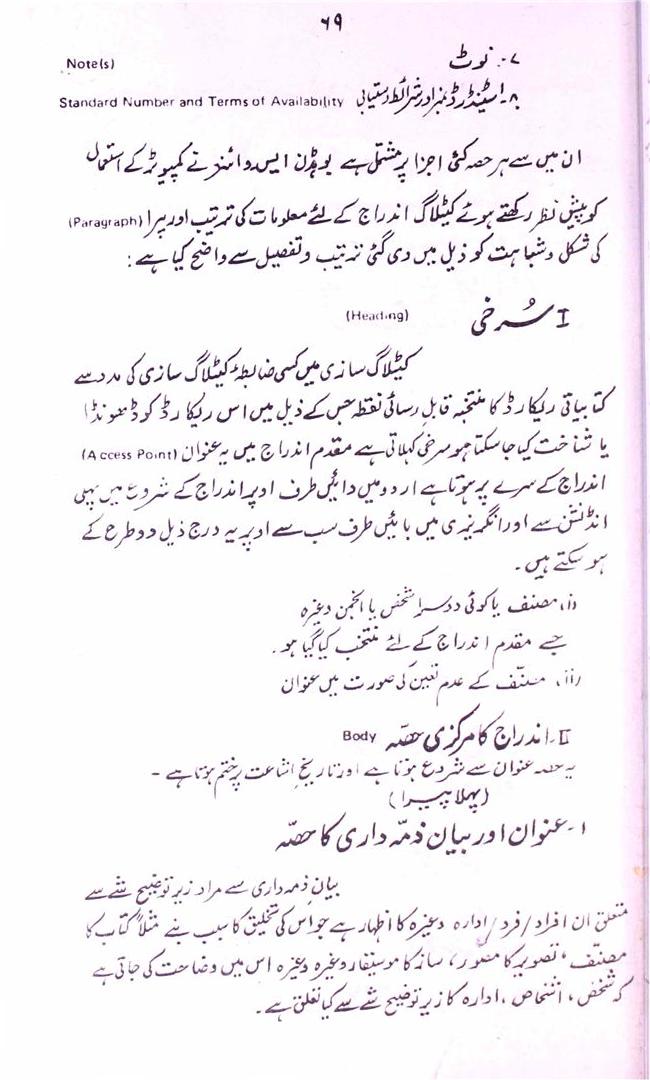 ۶۹
۷۔ نوٹ Note(s)
۸۔ اسٹینڈرڈ نمبر اور شرائط دستیابی Standard Number and Terms of Availability
ان میں سے ہر حصہ کئی اجزا پر مشتمل ہے بوہڈن ایس وائنز نے کمپیوٹر کے استعمال
کو پیش نظر رکھتے ہوئے کیٹلاگ اندراج کے لئے معلومات کی ترتیب اور پیرا (Paragraph)
کی شکل و شباہت کو ذیل میں دی گئی ترتیب و تفصیل سے واضح کیا ہے :
I سُرخی (Heading)
کیٹلاگ سازی میں کسی ضابطۂ کیٹلاگ سازی کی مدد سے
کتابیاتی ریکارڈ کا منتخبہ قابل رسائی نقطہ جس کے ذیل میں اس ریکارڈ کو ڈھونڈا
یا شناخت کیا جا سکتا ہو سرخی کہلاتی ہے مقدم اندراج میں یہ عنوان (Access Point)
اندراج کے سرے پر ہوتا ہے اردو میں دائیں طرف اوپر اندراج کے شروع میں پہلی
انڈنشن سے اور انگریزی میں بائیں طرف سب سے اوپر یہ درج ذیل دو طرح کے
ہو سکتے ہیں۔
(i) مصنف یا کوئی دوسرا شخص یا انجمن وغیرہ
جسے مقدم اندراج کے لئے منتخب کیا گیا ہو۔
(ii) مصنّف کے عدم تعین کی صورت میں عنوان
II۔ اندراج کا مرکزی حصّہ Body
یہ حصہ عنوان سے شروع ہوتا ہے اور تاریخِ اشاعت پر ختم ہوتا ہے ۔
(پہلا پیرا)
۱۔ عنوان اور بیان ذمّہ داری کا حصّہ
بیانِ ذمہ داری سے مراد زیر توضیح شے سے
متعلق ان افراد/فرد/ادارہ وغیرہ کا اظہار ہے جو اس کی تخلیق کا سبب بنے مثلاً کتاب کا
مصنّف، تصویر کا مصور، ساز کا موسیقار وغیرہ وغیرہ اس میں وضاحت کی جاتی ہے
کہ شخص، اشخاص، ادارہ کا زیر توضیح شے سے کیا تعلق ہے۔